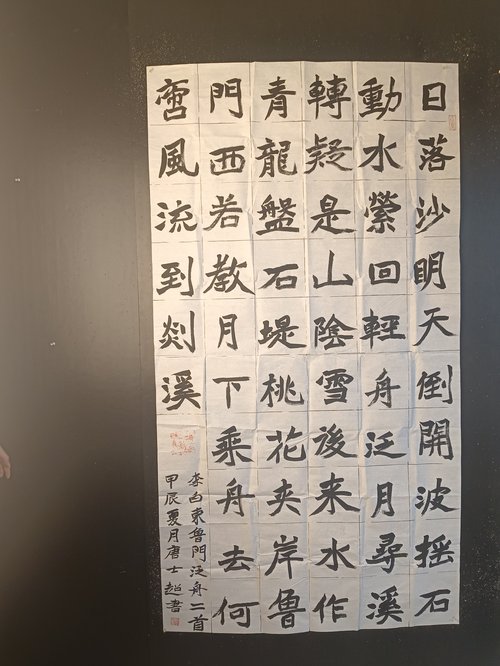 日落沙眀天倒開波摇石
動水縈回輕舟泛月尋溪
轉疑是山陰雪後来水作
青龍盤石堤桃花夾岸魯
門西若教月下乘舟去何
啻風流到剡溪
李白東魯門泛舟二首
甲辰夏月唐士超書